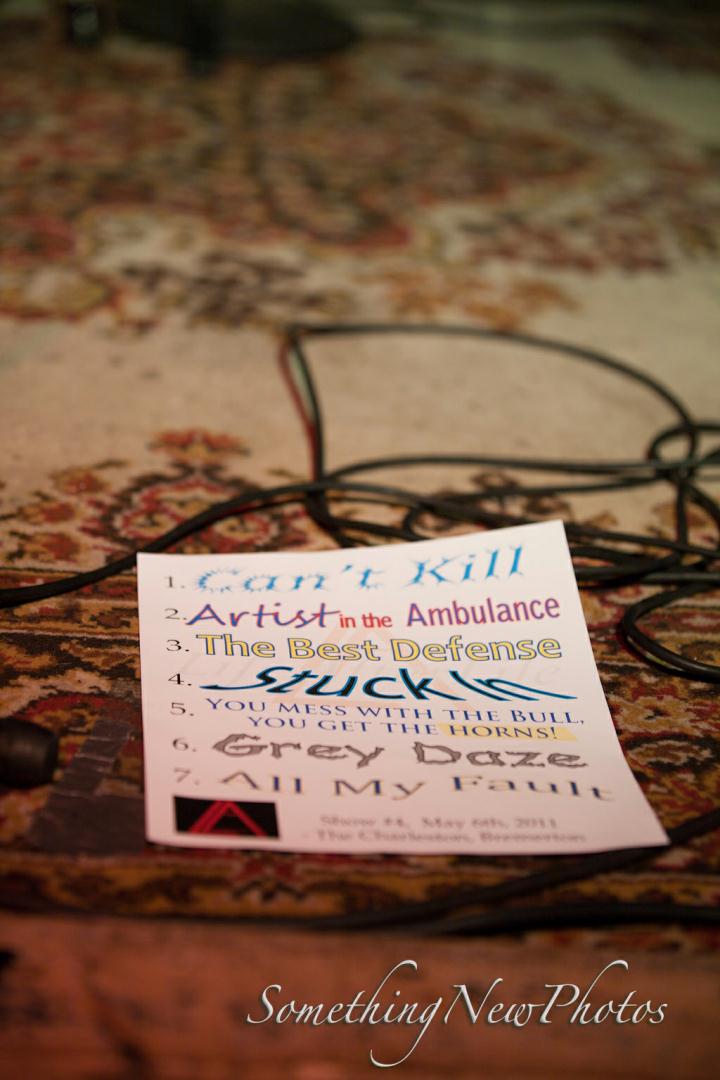 1. Can't Kill
2. Artist in the Ambulance
3. The Best Defense
4. Stuck In
5. YOU MESS WITH THE BULL,
YOU GET THE HORNS!
6. Grey Daze
7. All My Fault
Show #4, May 6th, 2011
- The Charleston, Bremerton
SomethingNewPhotos